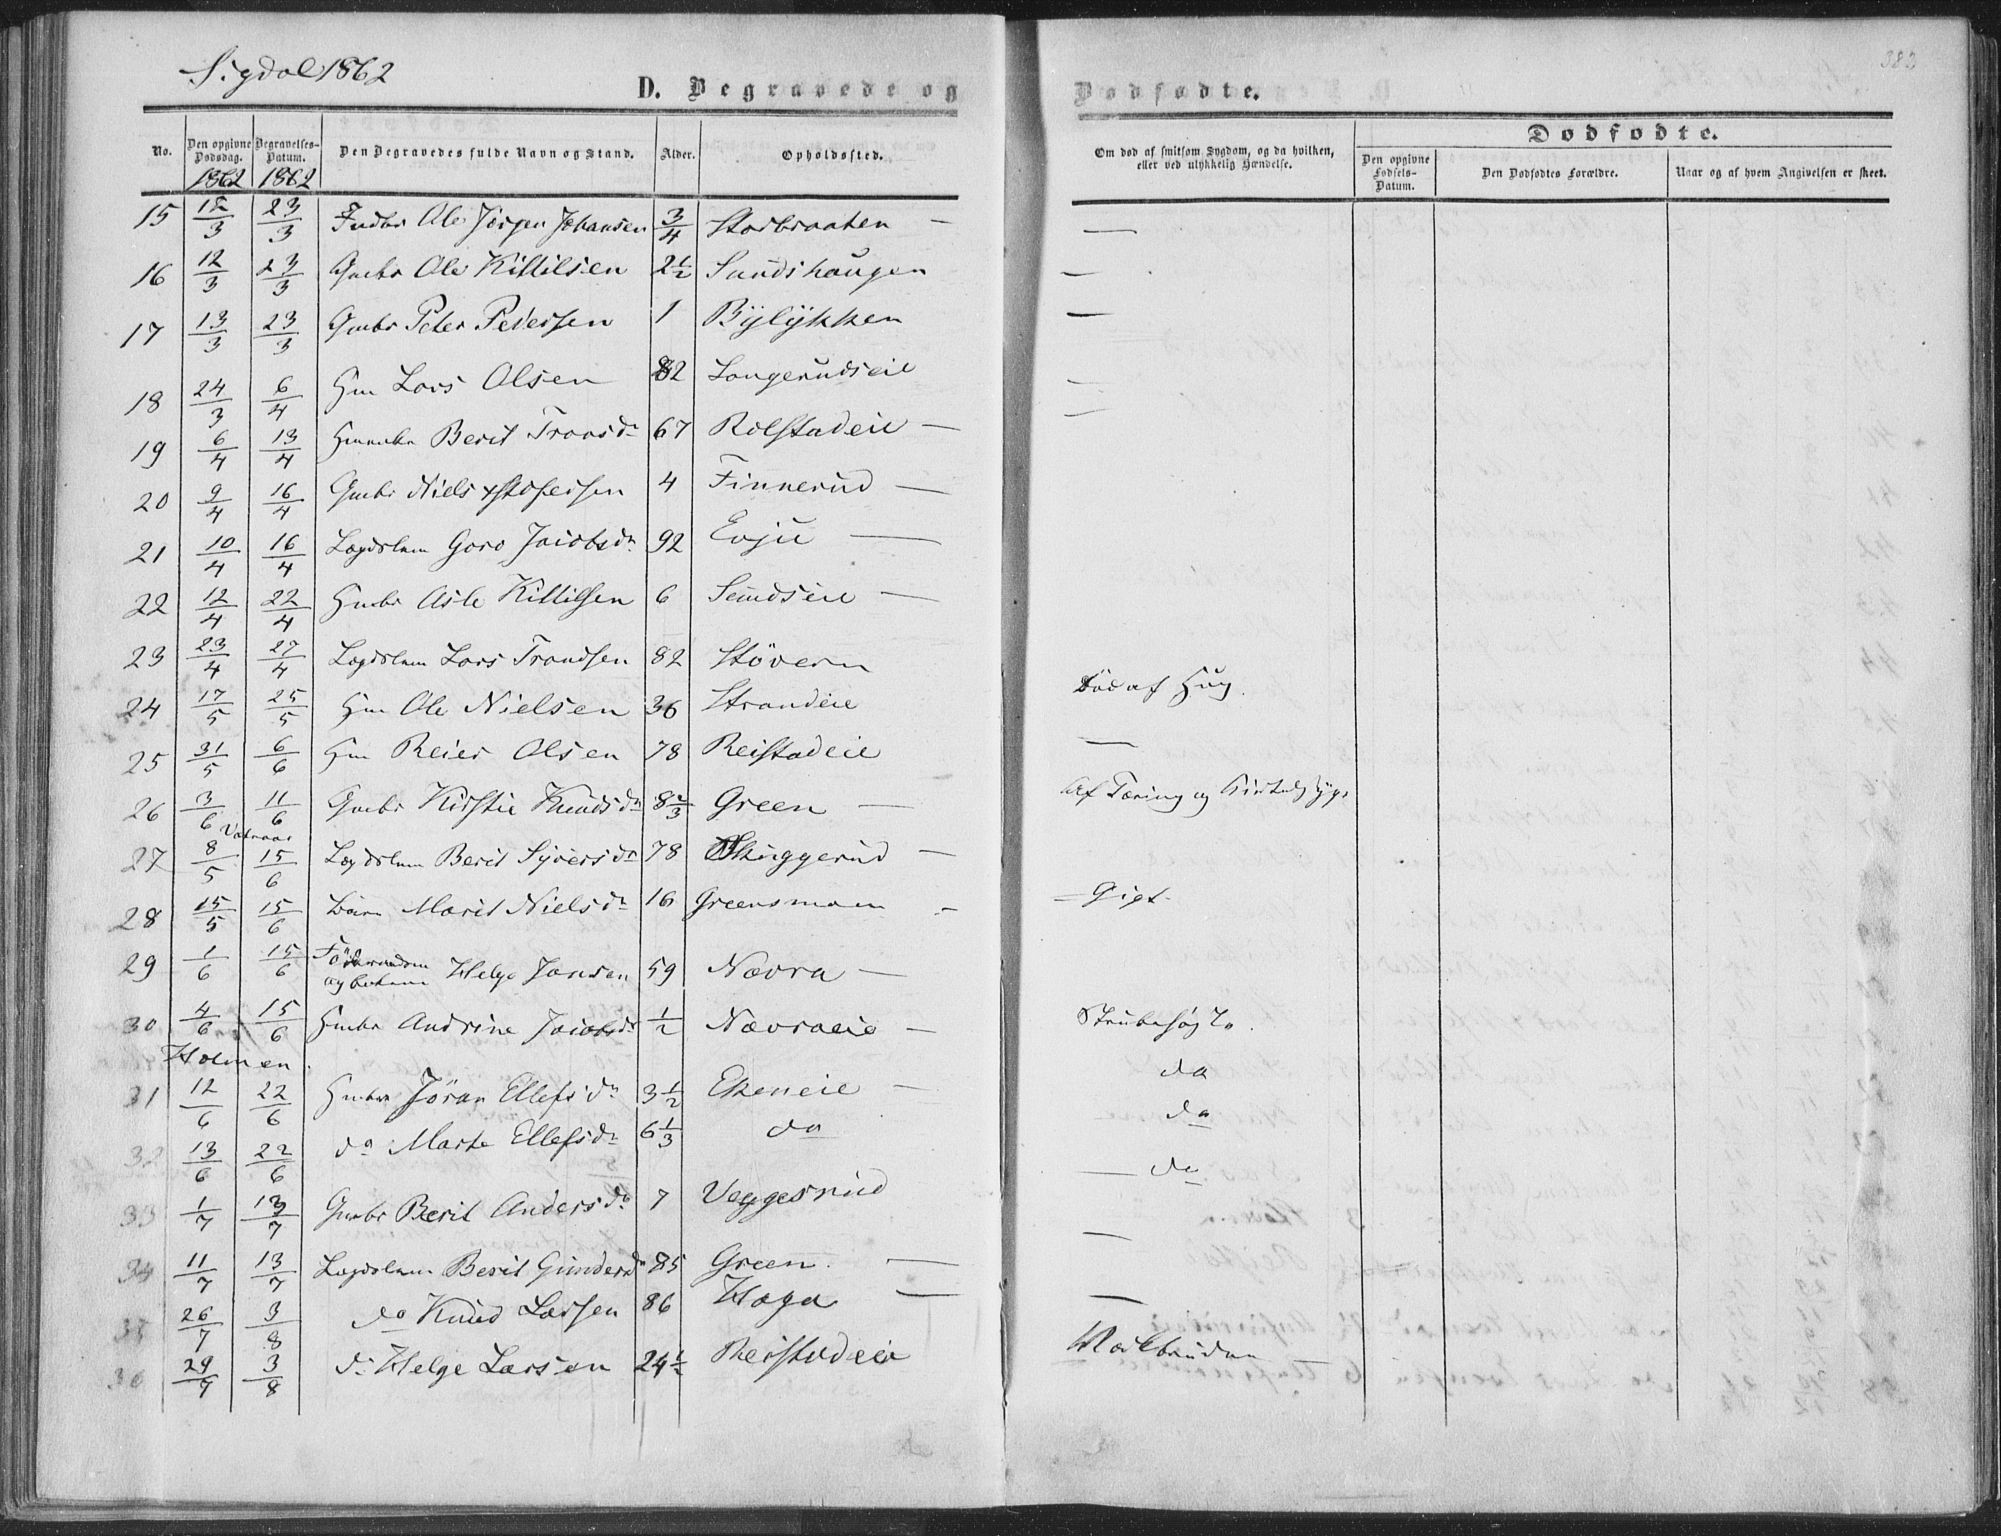 Sigdal 1862
D. Begravede og
No. Den opgivne Dødsdag. Begravelses-Datum. Den Begravedes fulde Navn og Stand. Alder. Opholdssted.
1862 1862
15 12/3 23/3 Ole Jørgen Johansen 3/4 Storbraaten —
16 12/3 23/3 Gmbr Ole Kittilsen 2 1/2 Sundshaugen
17 13/3 23/3 Gmbr Peter Pedersen 1 Bylykken
18 24/3 6/4 Hm Lars Olsen 82 Langerudseie
19 6/4 13/4 Berit Traasdr 67 Rolstadeie —
20 9/4 16/4 Gmbr Niels 4 Finnerud —
21 10/4 16/4 Lægdslem Goro Jacobsdr 92 Evju —
22 12/4 22/4 Hmbr Asle Kittilsen 6 Semdseie —
23 23/4 27/4 Lægdslem Lars Trondsen 82 Støvern
24 17/5 25/5 Hm Ole Nielsen 36 Strandeie
25 31/5 6/6 Hm Reier Olsen 78 Reistadeie
26 3/6 11/6 Gmbr Kirstie Knudsdr 8 2/3 Green —
27 8/5 15/6 Lægdslem Berit Syversdr 78 Skuggerud —
28 15/5 15/6 Marit Nielsdr 16 Greensmoen —
29 1/6 15/6 Helge Jonsen 59 Nævra —
30 4/6 15/6 Hmbr Andrine Jacobsdr 1/2 Nævraeie —
Holmen
31 12/6 22/6 Hmbr Jöran Ellefsdr 3 1/2 Ekeneie —
32 13/6 22/6 do Marte Ellefsdr 6 1/3 do
33 1/7 13/7 Gmbr Berit Andersdr 7 Veggesrud
34 11/7 13/7 Lægdslem Berit Gundersdr 85 Green. —
35 26/7 3/8 do Knud Larsen 86 Haga —
36 29/7 3/8 do Helge Larsen 24 1/2 Reistadeie
383
Dødfødte.
Om død af smitsom Sygdom, og da hvilken, eller ved ulykkelig Hændelse.
Dødfødte.
Den opgivne Fødsels-Datum. Den Dødfødtes Forældre. Naar og af hvem Angivelsen er skeet.
—
—
—
—
—
Død af
—
Af Tæring og
— Gigt.
Strubesyge.
do
do
— do
—
—